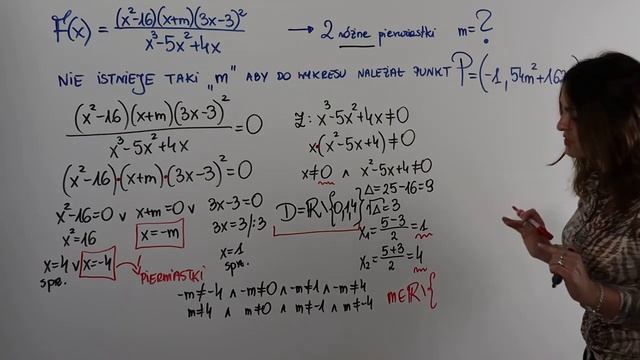 F(x) = (x²-16)(x+m)(3x-3)² / x³-5x²+4x → 2 różne pierwiastki m=?
NIE ISTNIEJE TAKI „m” ABY DO WYKRESU NALEŻAŁ PUNKT P=(-1, 54m²+162
(x²-16)(x+m)(3x-3)² / x³-5x²+4x = 0
(x²-16)·(x+m)·(3x-3)²=0
x²-16=0 v x+m=0 v 3x-3=0
x²=16 x=-m 3x=3/:3
x=4 v x=-4 x=1
spr. PIERWIASTKI spr.
Z: x³-5x²+4x≠0
x·(x²-5x+4)≠0
x≠0 ∧ x²-5x+4≠0
Δ=25-16=9
D=ℝ\{0,1,4} √Δ=3
x₁=5-3/2=1
x₂=5+3/2=4
-m≠-4 ∧ -m≠0 ∧ -m≠1 ∧ -m≠4
m≠4 ∧ m≠0 ∧ m≠-1 ∧ m≠-4
m∈ℝ\{